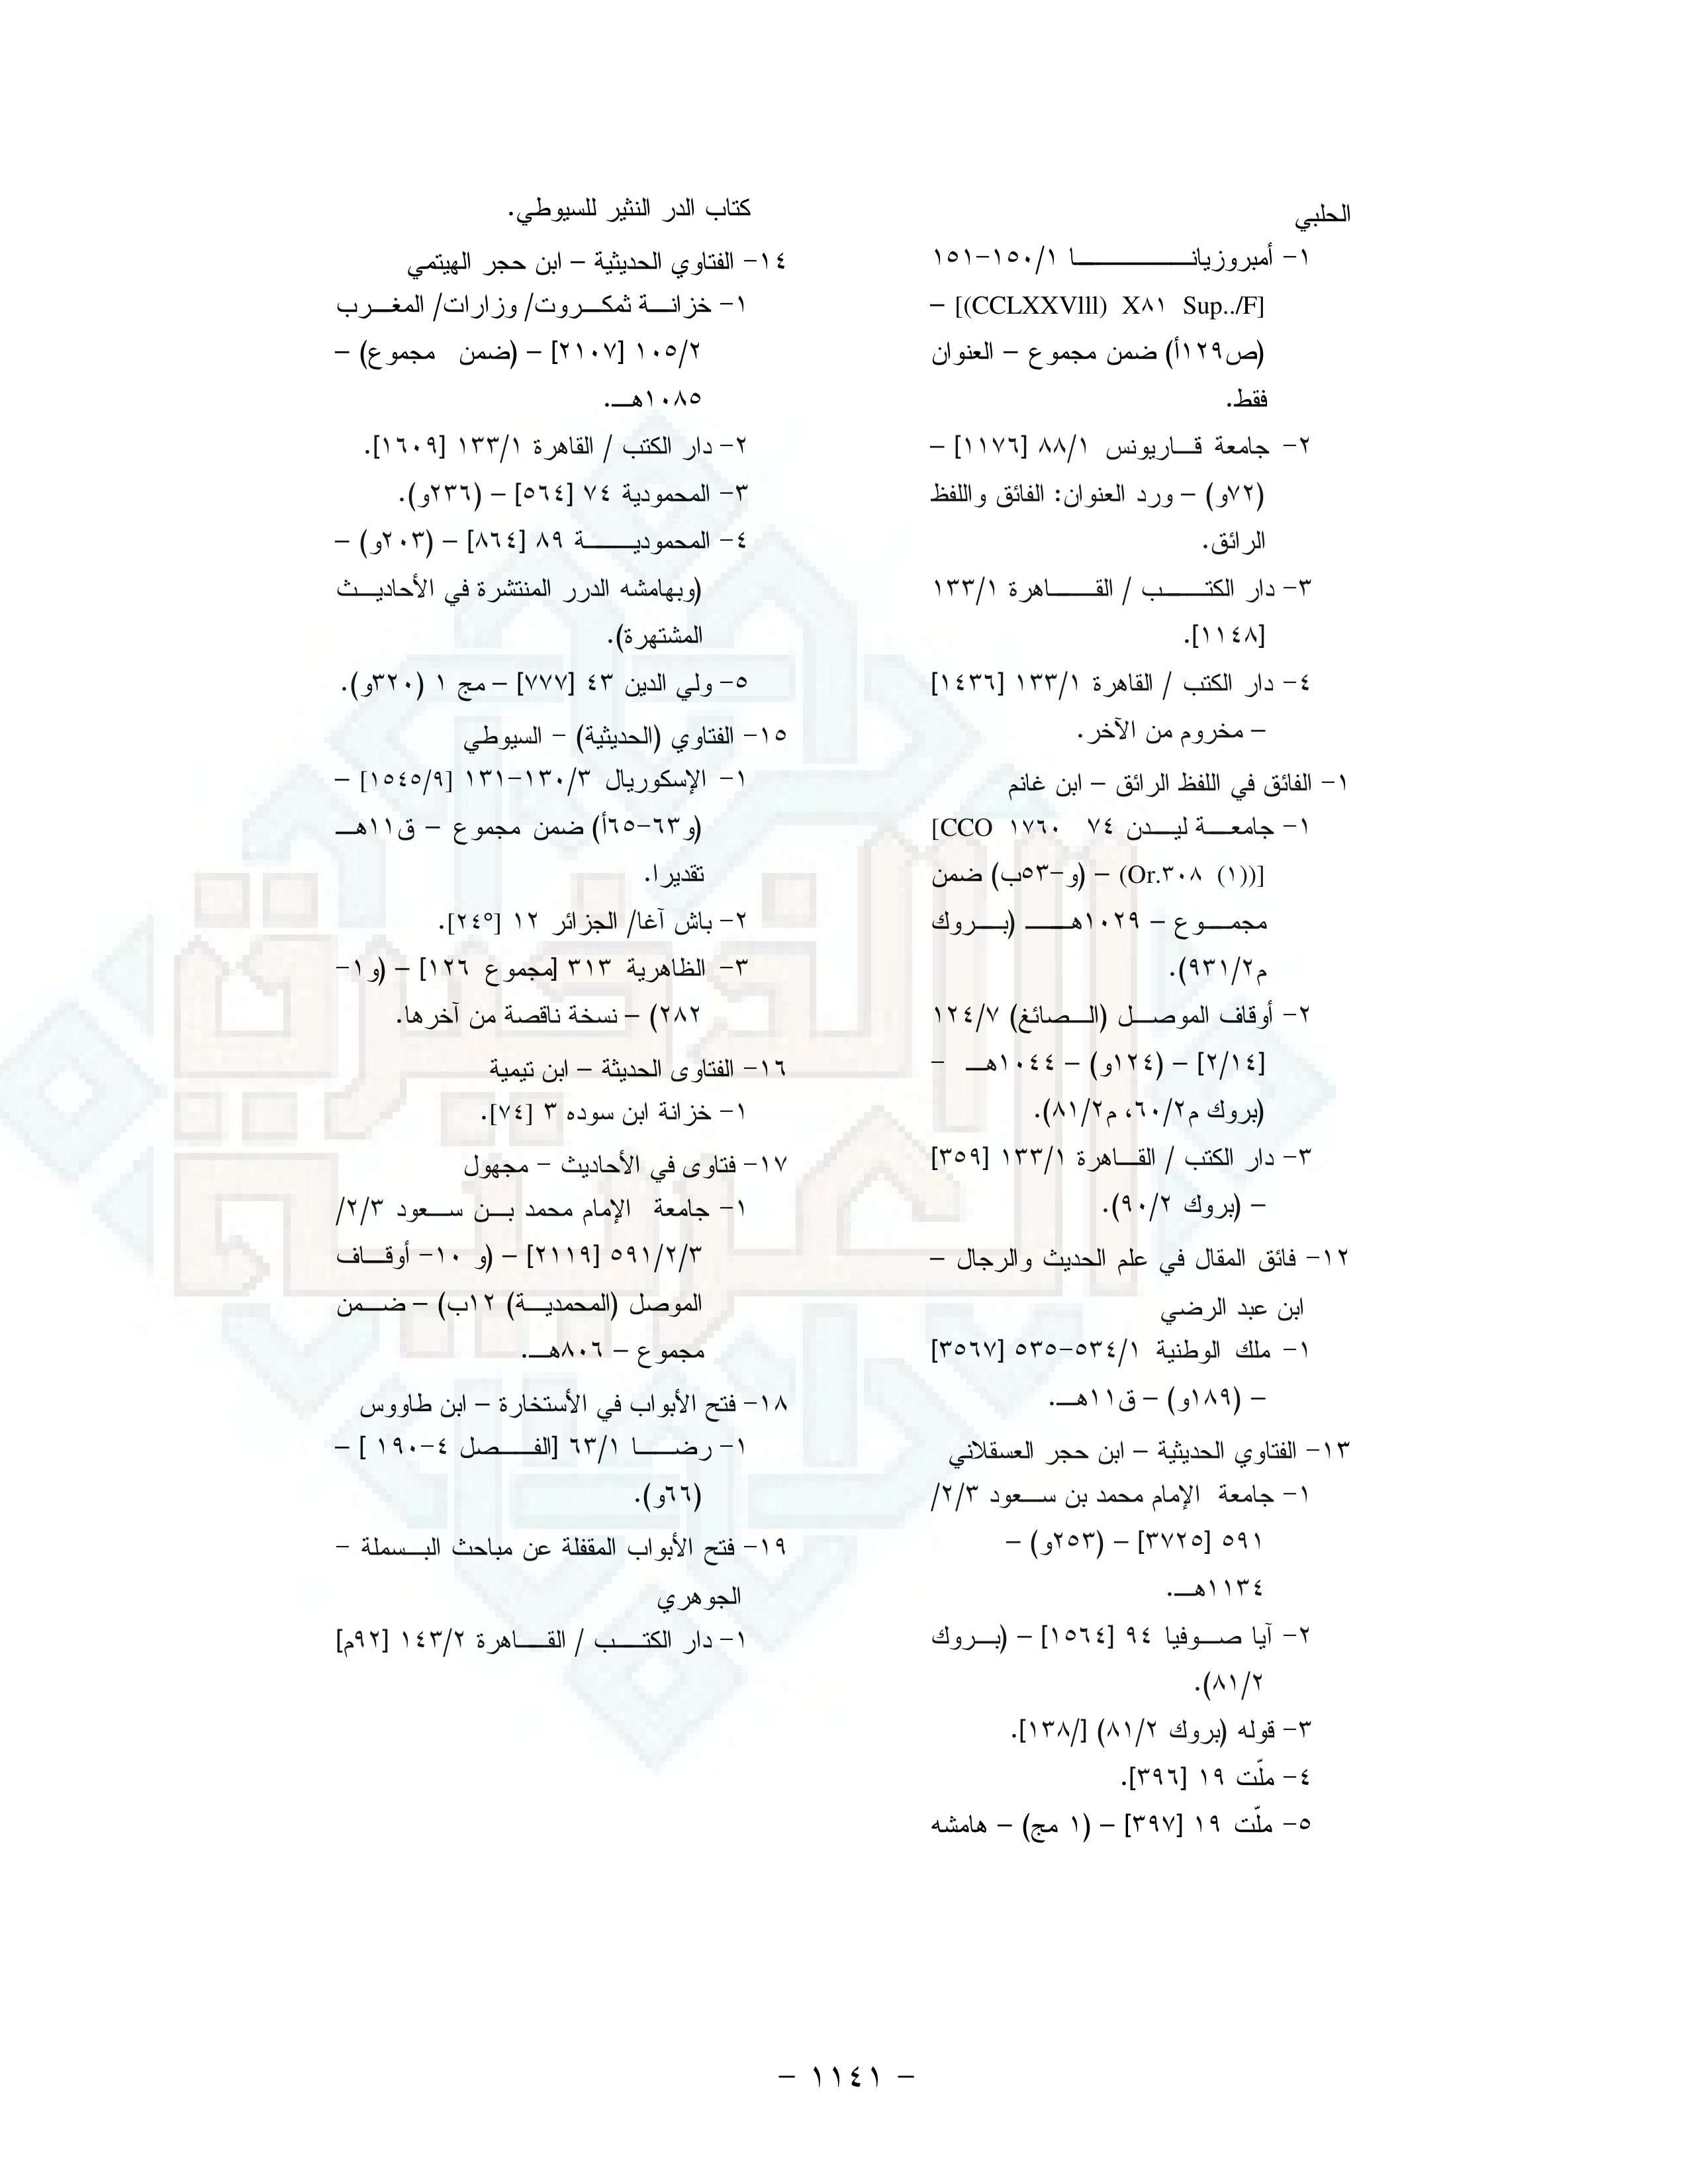 الحلبي
١- أمبروزيانا ١/ ١٥٠-١٥١
[(CCLXXVlll) X٨١ Sup../F] –
(ص١٢٩أ) ضمن مجموع – العنوان
فقط.
٢- جامعة قاريونس ٨٨/١ [١١٧٦] –
(٧٢و) – ورد العنوان: الفائق واللفظ
الرائق.
٣- دار الكتب / القاهرة ١٣٣/١
[١١٤٨].
٤- دار الكتب / القاهرة ١٣٣/١ [١٤٣٦]
– مخروم من الآخر.
١- الفائق في اللفظ الرائق – ابن غانم
١- جامعة ليدن ٧٤ ١٧٦٠ CCO]
[((١) Or.٣٠٨) – (و-٥٣ب) ضمن
مجموع – ١٠٢٩هـ (بروك
م٩٣١/٢).
٢- أوقاف الموصل (الصائغ) ١٢٤/٧
[٢/١٤] – (١٢٤و) – ١٠٤٤هـ –
(بروك م٦٠/٢، م٨١/٢).
٣- دار الكتب / القاهرة ١٣٣/١ [٣٥٩]
– (بروك ٩٠/٢).
١٢- فائق المقال في علم الحديث والرجال –
ابن عبد الرضي
١- ملك الوطنية ٥٣٤/١-٥٣٥ [٣٥٦٧]
– (١٨٩و) – ق١١هـ.
١٣- الفتاوي الحديثية – ابن حجر العسقلاني
١- جامعة الإمام محمد بن سعود ٢/٣/
٥٩١ [٣٧٢٥] – (٢٥٣و) –
١١٣٤هـ.
٢- آيا صوفيا ٩٤ [١٥٦٤] – (بروك
٨١/٢).
٣- قوله (بروك ٨١/٢) [/١٣٨].
٤- ملّت ١٩ [٣٩٦].
٥- ملّت ١٩ [٣٩٧] – (١ مج) – هامشه
كتاب الدر النثير للسيوطي.
١٤- الفتاوي الحديثية – ابن حجر الهيتمي
١- خزانة ثمكروت/ وزارات/ المغرب
١٠٥/٢ [٢١٠٧] – (ضمن مجموع) –
١٠٨٥هـ.
٢- دار الكتب / القاهرة ١٣٣/١ [١٦٠٩].
٣- المحمودية ٧٤ [٥٦٤] – (٢٣٦و).
٤- المحمودية ٨٩ [٨٦٤] – (٢٠٣و) –
(وبهامشه الدرر المنتشرة في الأحاديث
المشتهرة).
٥- ولي الدين ٤٣ [٧٧٧] – مج ١ (٣٢٠و).
١٥- الفتاوي (الحديثية) – السيوطي
١- الإسكوريال ١٣٠/٣-١٣١ [١٥٤٥/٩] –
(و٦٣-٦٥أ) ضمن مجموع – ق١١هـ
تقديرا.
٢- باش آغا/ الجزائر ١٢ [٢٤°].
٣- الظاهرية ٣١٣ [مجموع ١٢٦] – (و١-
٢٨٢) – نسخة ناقصة من آخرها.
١٦- الفتاوى الحديثة – ابن تيمية
١- خزانة ابن سوده ٣ [٧٤].
١٧- فتاوى في الأحاديث – مجهول
١- جامعة الإمام محمد بن سعود ٢/٣/
٥٩١/٢/٣ [٢١١٩] – (و ١٠- أوقاف
الموصل (المحمدية) ١٢ب) – ضمن
مجموع – ٨٠٦هـ.
١٨- فتح الأبواب في الأستخارة – ابن طاووس
١- رضا ٦٣/١ [الفصل ٤-١٩٠ ] –
(٦٦و).
١٩- فتح الأبواب المقفلة عن مباحث البسملة –
الجوهري
١- دار الكتب / القاهرة ١٤٣/٢ [٩٢م]
– ١١٤١ –
الذخيرة
العربية